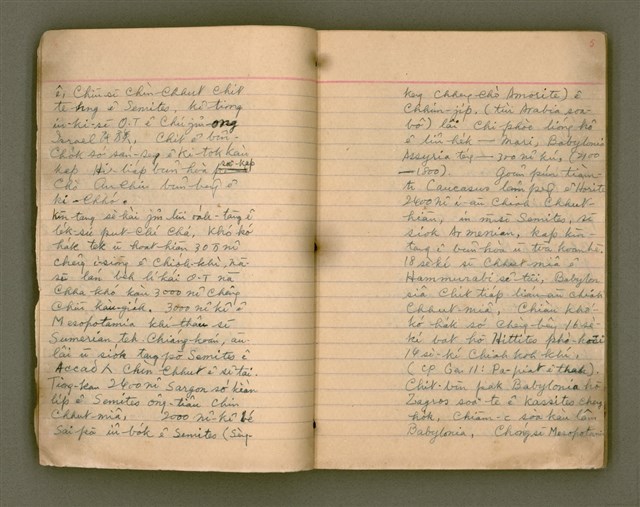 ê, Chiū-sī Chin-Chhut Chit
te-hng ê Semites, kî-tiong
iú-kì-sū O-T ê Chú-jîn-ong
Israel 民族, Chit ê bîn-
Chòk só͘ san-seng ê Ki-tok kàu
kap Hi-liáp bûn-hoà sad-kap
Chò Au-Chiu bûn-bêng ê
ki-Chhó͘.
Kīn-tang sè-kài jîn-lūi oa̍h-tāng ê
le̍k-sú put-Chí Chá, Khó-kó͘
ha̍k tek ū hoat-hiān 30 B nî
chêng i-siōng ê Chiah-khì, nā-
sī lán beh lí-hái O-T nā
Chha-khó kàu 3000 nî Chêng
Chiū kàu-gia̍h. 3000 nî kî ê
Mesopotamia khí-thâu sī
Sumerian teh Chiàng-koán, āu-
lâi ū siok tang pō͘ Semites ê
Accad 人 Chin Chhut ê sî-tāi.
Tiong-kan 2400 nî Sargon só͘ kiàn-
li̍p ê Semites ông-tiâu Chin
Chhut-miâ. 2000 nî-kî bé
Sai-pō͘ iû-bo̍k ê Semites (Sèng-
5
keng chheng-chò Amorite) ê
Chhim-ji̍p. (tùi Arabia soa-
bô͘) lâi Chi-phòe liông-hô
ê lîm-he̍k — Mari, Babylonia
Assyria téng — 300 nî kú, (2100
—1800). Goān pún tiàm
tī Caucasus lâm pêng ê Horite
2400 nî í-āu Chiah Chhut-
hiān, in m̄-sī Semites, sī
siok Armenian, kap kīn-
tang ê bûn-hoà ū toā koan-hē.
18 sè-kí sī Chhut-miâ ê
Hammurabi sî-tāi, Babylon
siâ Chit tia̍p liân-āu chiah
Chhut-miâ, Chiàu khó-
kó͘-ha̍k só͘ Chèng-bêng 16 sè-
kí bat hō͘ Hittites phò-hoāi
14 sè-kí Chiah hok-khí,
(cp. Gen 11: Pa-pia̍t ê thah).
Chit-bīn pak Babylonia hō͘
Zagros soaⁿ-tè ê Kassites cheng-
ho̍k, Chiām-chiām soà kàu lâm
Babylonia, Chóng-sī Mesopotam